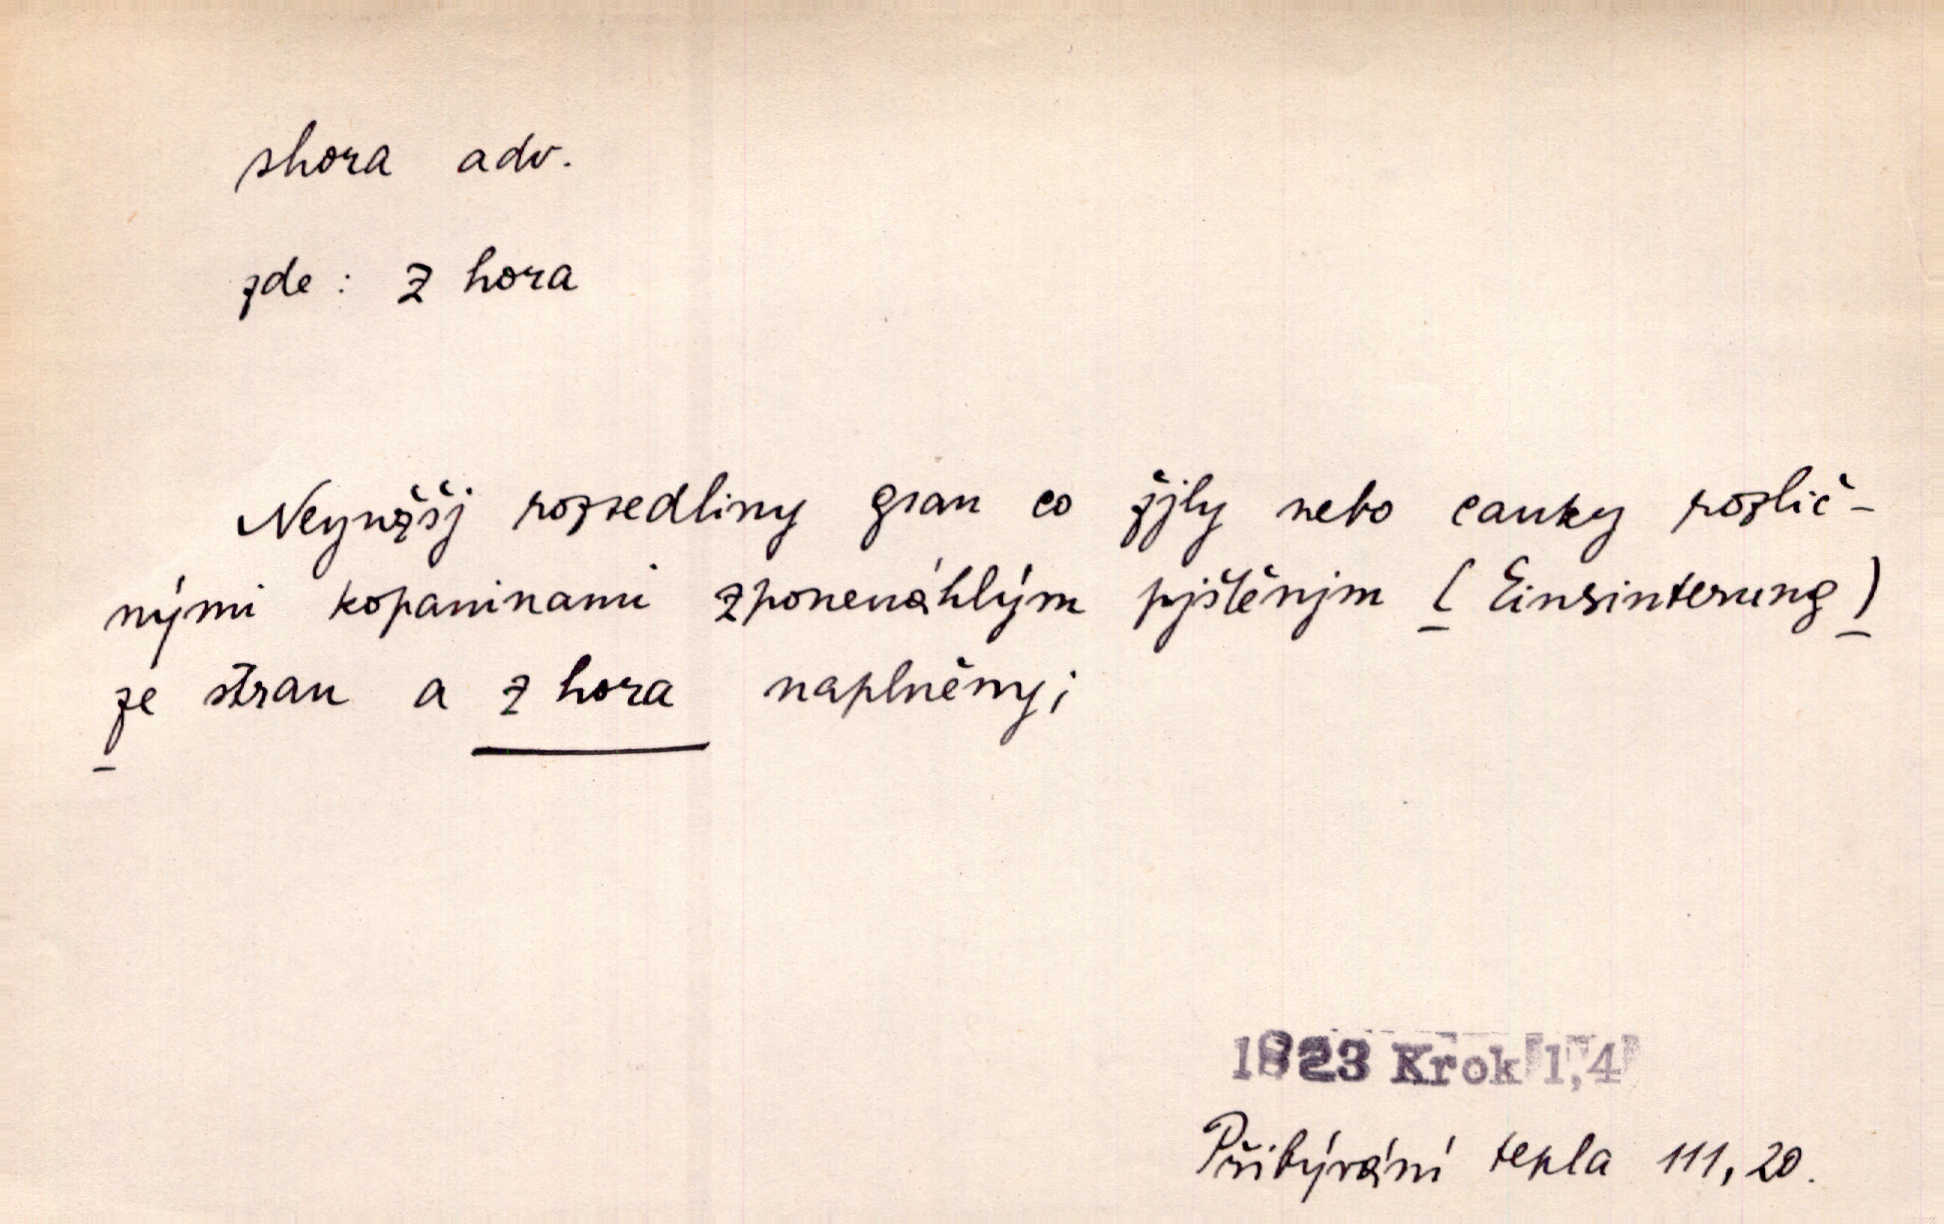 shora adv.
zde : z hora
Neyužšj rozsedliny gsau co žjly nebo cauky rozlič-
nými kopaninami zponenáhlým pjštěnjm ( Einsinterung )
ze stran a z hora naplněny;
1823 Krok 1,4
Přibývání tepla 111, 20.